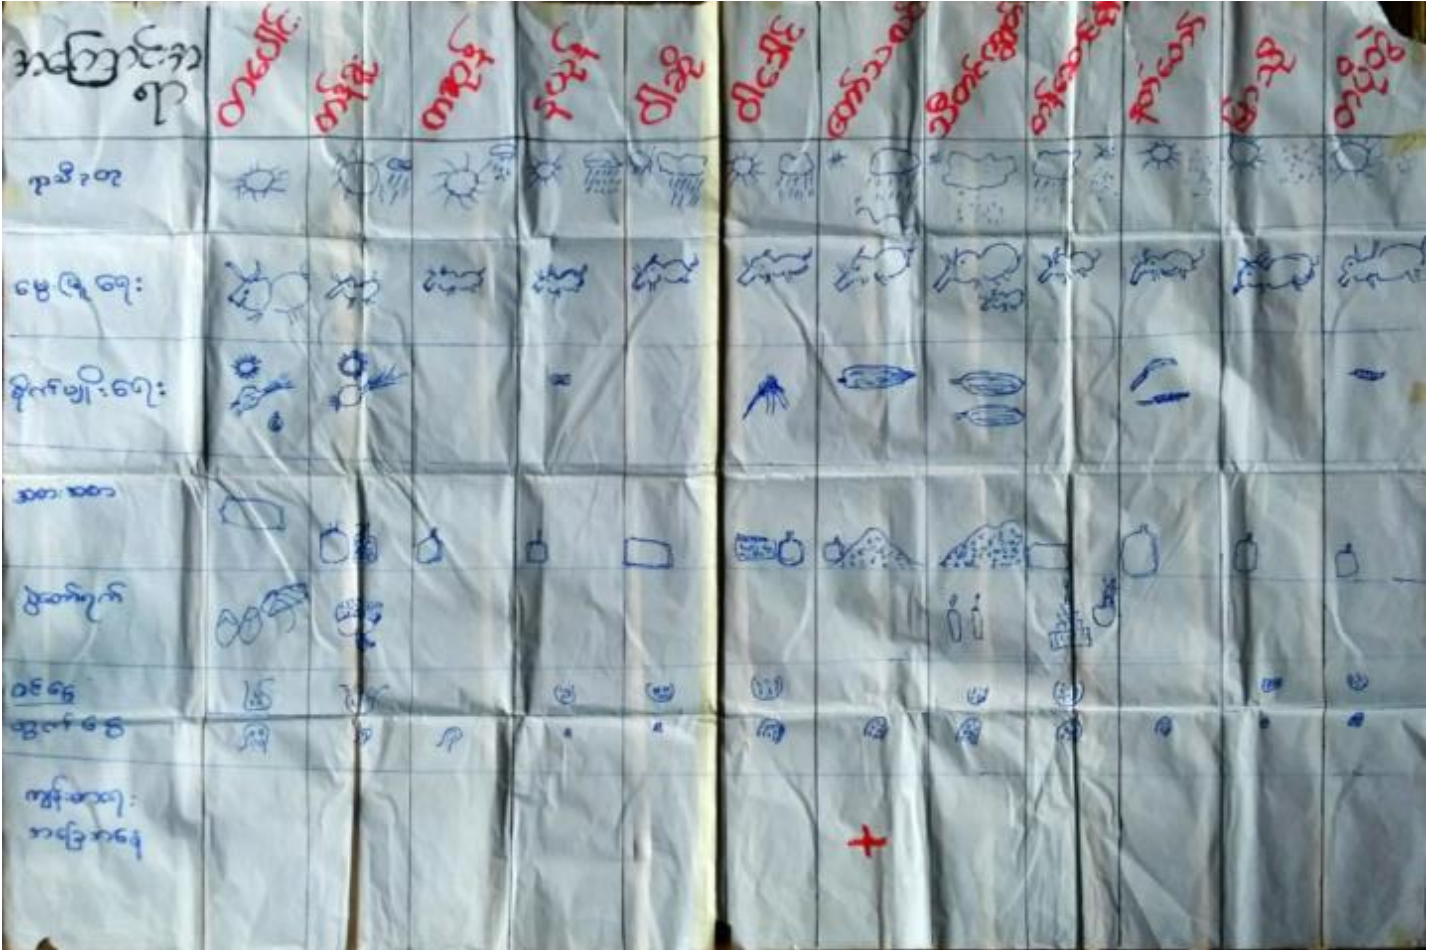 အကြောင်းအ
ရာ
တပေါင်း
တန်ခူး
ကဆုန်
နယုန်
ဝါဆို
ဝါခေါင်
တော်သလင်း
သီတင်းကျွတ်
တန်ဆောင်မုန်း
နတ်တော်
ပြာသို
တပို့တွဲ
ရာသီဥတု
မွေးမြူရေး
စိုက်ပျိုးရေး
အစားအစာ
ပွဲတော်ရက်
ဝင်ငွေ
ထွက်ငွေ
ကျန်းမာရေး
အခြေအနေ